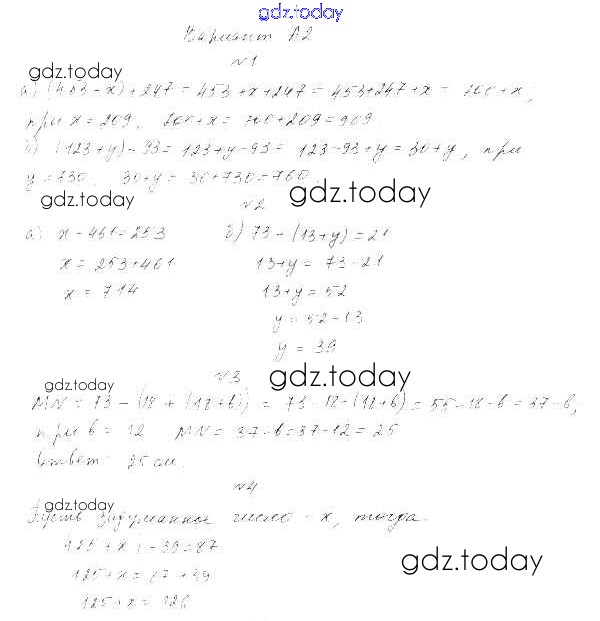 gdz.today
Вариант А2
№1
gdz.today
а) (453-х)+247=453+х+247=453+247+х=700+х;
при х=209, 700+х=700+209=909.
б) (123+у)-93=123+у-93=123-93+у=30+у, при
у=730. 30+у=30+730=760.
gdz.today gdz.today
№2
а) х-461=253 б) 73-(13+у)=21
х=253+461 13+у=73-21
х=714 13+у=52
у=52-13
у=39
№3
gdz.today gdz.today
MN=73-(18+(18+b))=73-18-(18+b)=55-18-b=37-b,
при b=12 MN=37-b=37-12=25
Ответ: 25 см.
№4
gdz.today
Пусть задуманное число - х, тогда
(125+х)-39=87
gdz.today
125+х=87+39
125+х=126